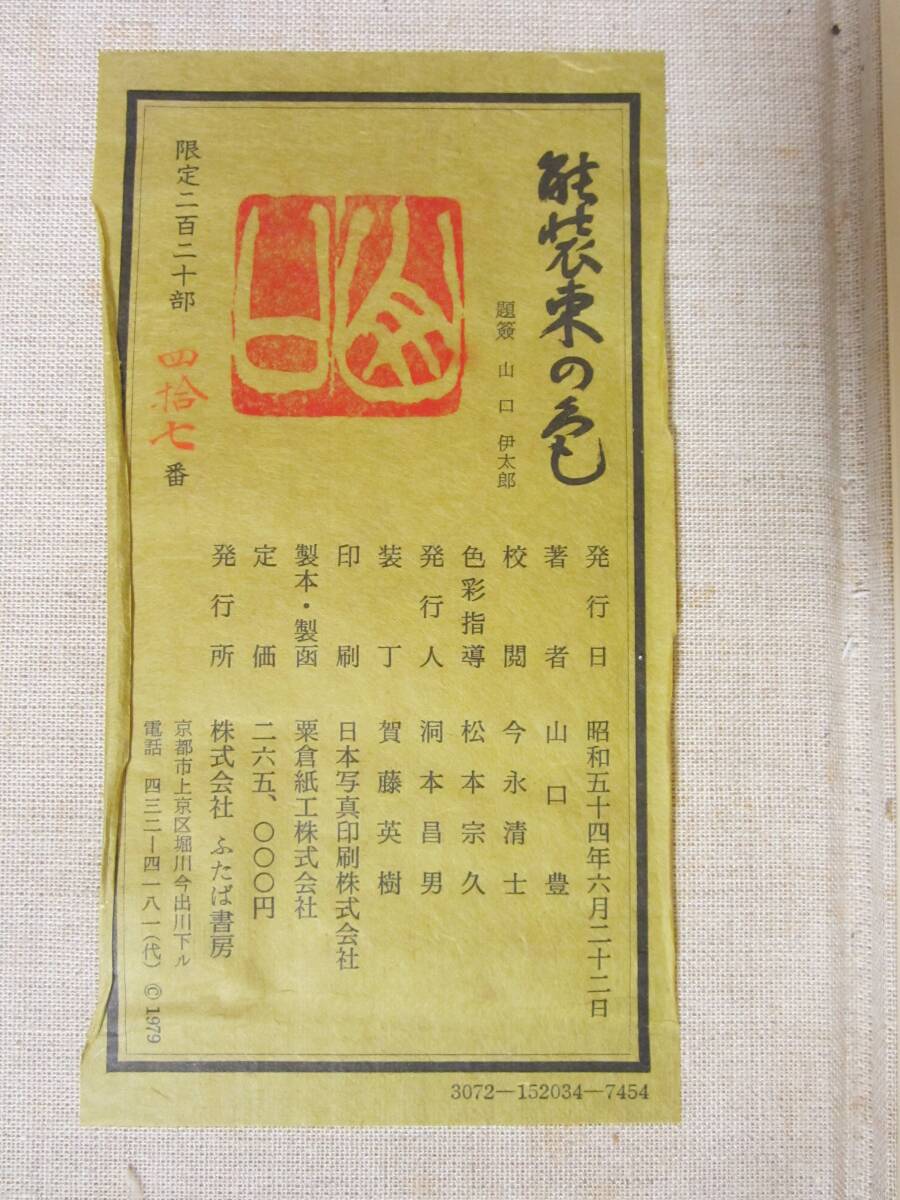 能装束の色
題簽 山口 伊太郎
限定二百二十部 四拾七番
発行日 昭和五十四年六月二十二日
著者 山口豊
校閲 今永清士
色彩指導 松本宗久
発行人 洞本昌男
装丁 賀藤英樹
印刷 日本写真印刷株式会社
製本・製函 粟倉紙工株式会社
定価 二六五、〇〇〇円
発行所 株式会社 ふたば書房
京都市上京区堀川今出川下ル
電話 四三二―四一八一(代) © 1979
3072―152034―7454